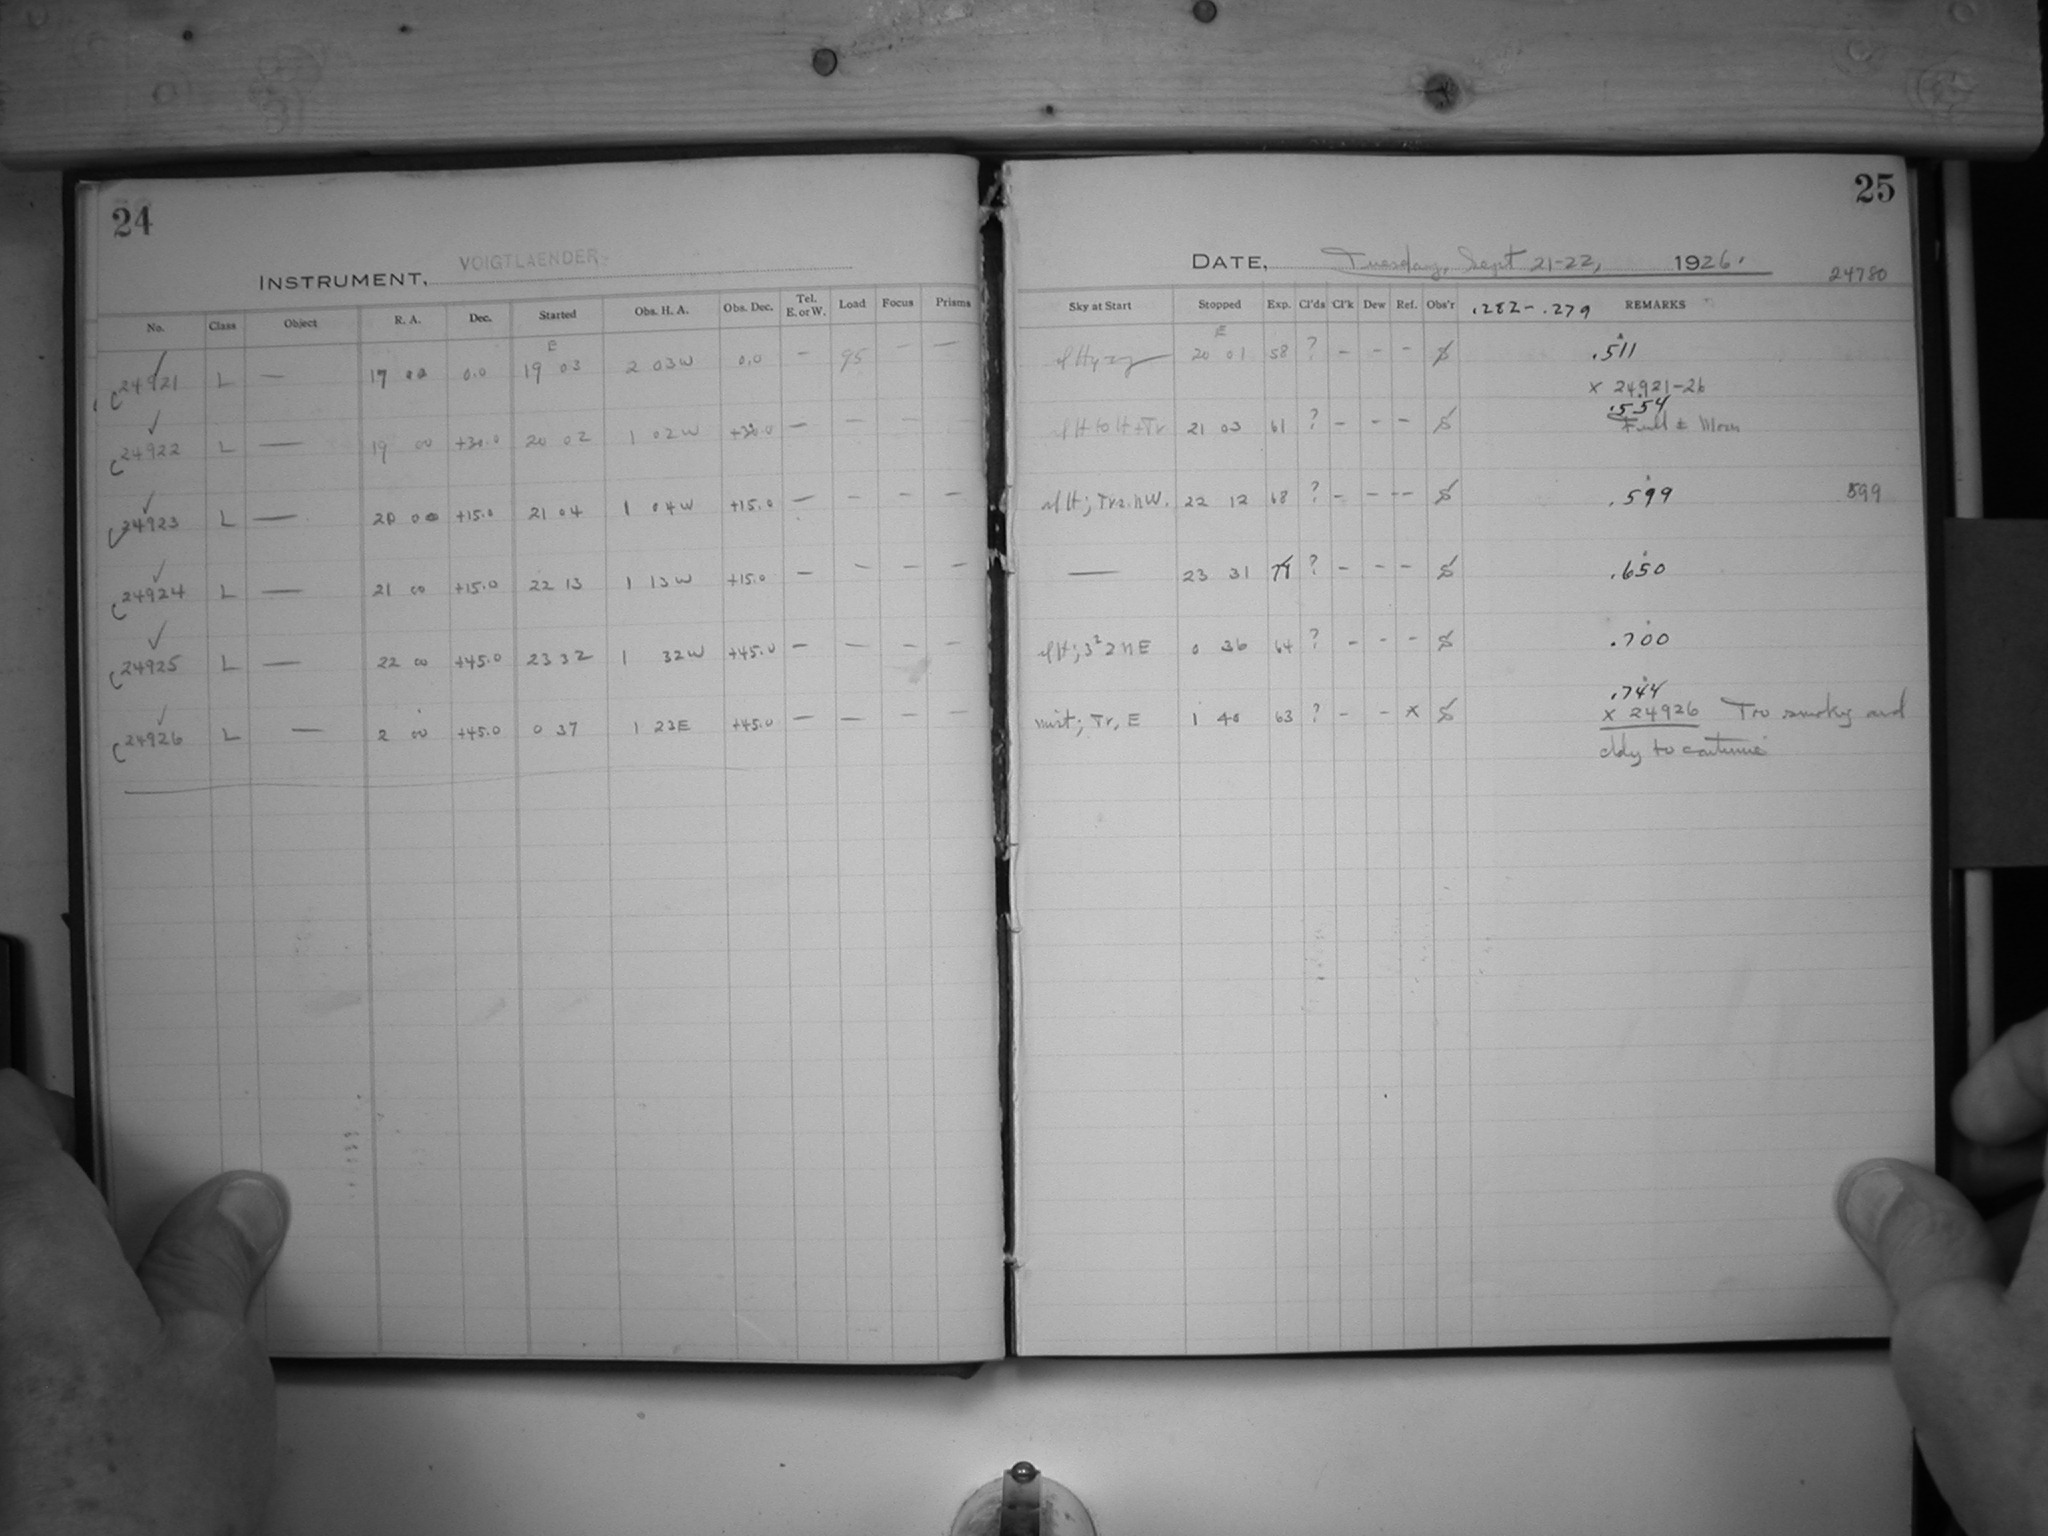 24
INSTRUMENT, VOIGTLAENDER
No. Class Object R. A. Dec. Started Obs. H. A. Obs. Dec. Tel. E. or W. Load Focus Prisms
E
24921 L — 17 00 0.0 19 03 2 03W 0.0 — 95 — —
24922 L — 19 00 +30.0 20 02 1 02W +30.0 — — — —
24923 L — 20 00 +15.0 21 04 1 04W +15.0 — — — —
24924 L — 21 00 +15.0 22 13 1 13W +15.0 — — — —
24925 L — 22 00 +45.0 23 32 1 32W +45.0 — — — —
24926 L — 2 00 +45.0 0 37 1 23E +45.0 — — — —
25
DATE, Tuesday, Sept 21-22, 1926.
24780
Sky at Start Stopped Exp. Cl'ds Cl'k Dew Ref. Obs'r .282-.279 REMARKS
E
20 01 58 ? - - - .511
x 24921-26
.554
21 03 61 ? - - - Full Moon
22 12 68 ? - - - .599 599
— 23 31 ? - - - .650
0 36 64 ? - - - .700
.744
mist; Tr, E 1 40 63 ? - - x x 24926 Too smoky and
cldy to continue